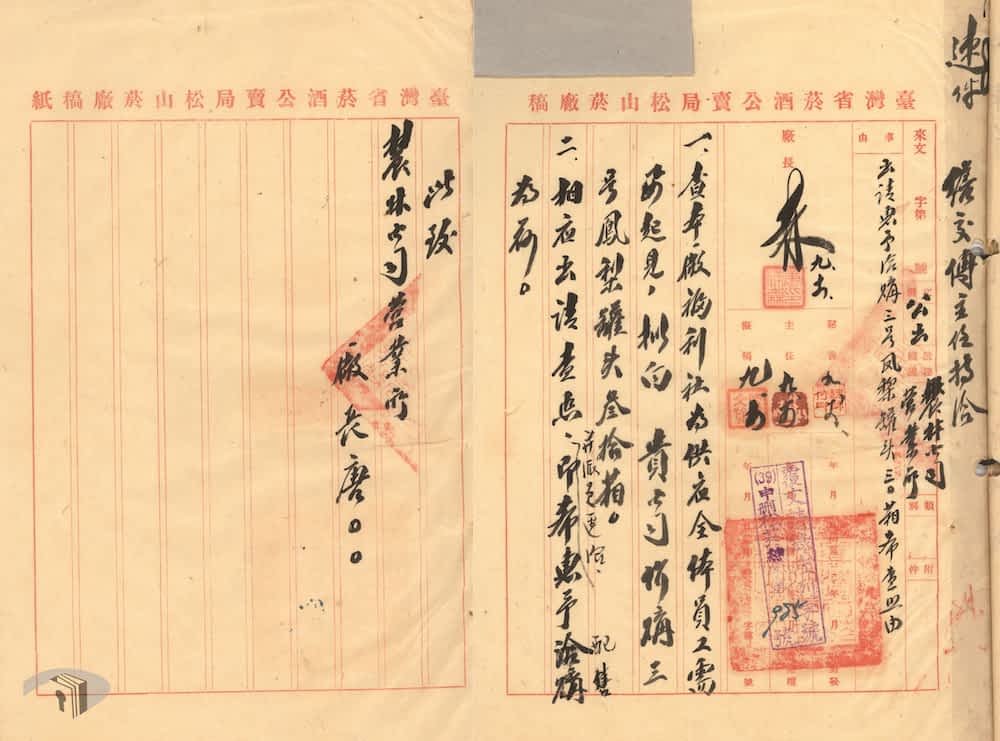 速件
繕交傅主任持洽
臺灣省菸酒公賣局松山菸廠稿
來文 字第 號
公出
農林公司
營業所
類別
附件
事由
出請惠予洽購三号凤梨罐头三〇箱希查照由
廠長
林
九、
主任
擬稿
覆文請
(39)
中
925
號
一、查本廠福利社為供應全体員工需
要起見，拟向 貴公司价購三
号鳳梨罐头叁拾箱。
二、相应出請查照、即希惠予洽購
配售
為荷。
臺灣省菸酒公賣局松山菸廠稿紙
此致
農林公司營業所
廠長唐〇〇